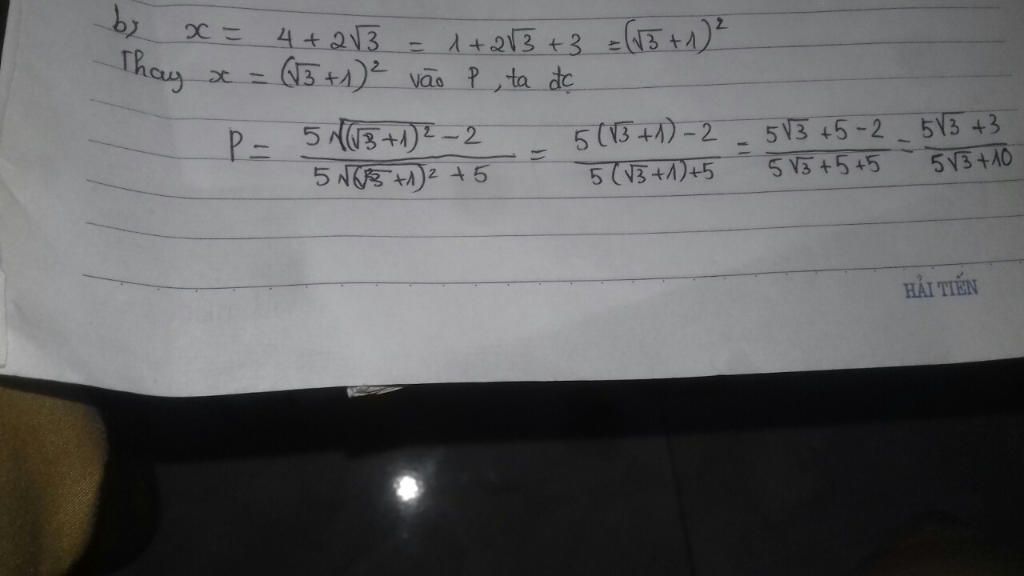 b, x = 4 + 2√3 = 1 + 2√3 + 3 = (√3 + 1)²
Thay x = (√3 + 1)² vào P, ta đc
P = (5√((√3 + 1)²) - 2) / (5√((√3 + 1)²) + 5) = (5(√3 + 1) - 2) / (5(√3 + 1) + 5) = (5√3 + 5 - 2) / (5√3 + 5 + 5) = (5√3 + 3) / (5√3 + 10)
HẢI TIẾN